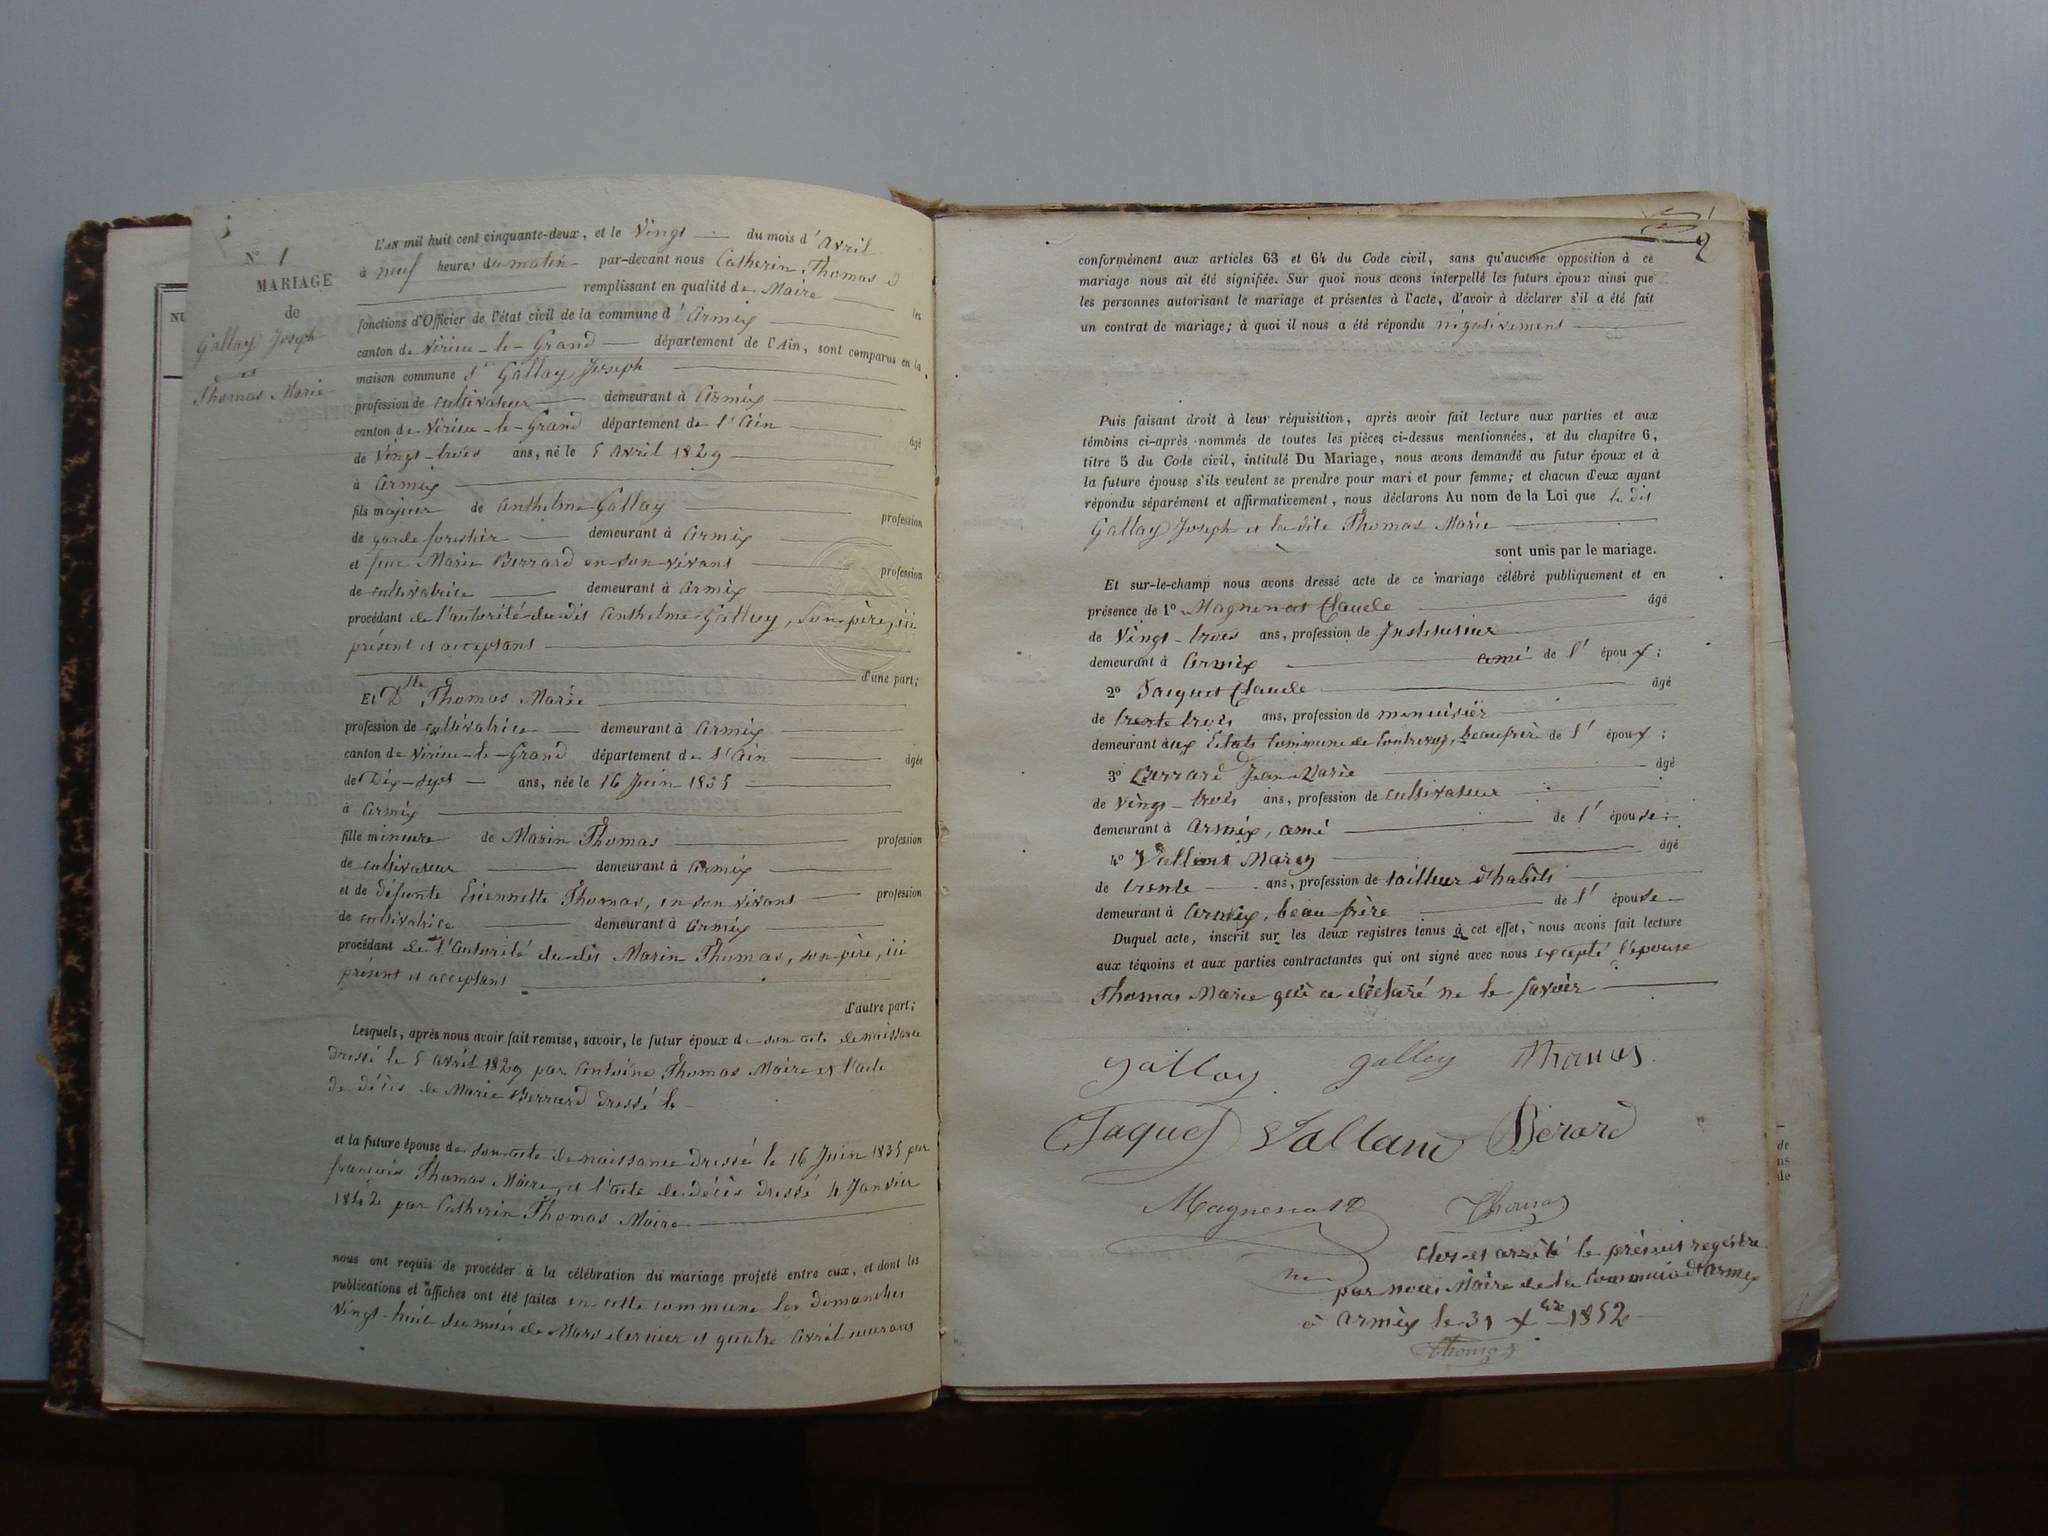 N° 1
MARIAGE
de
Gallay Joseph
et
Thomas Marie
L'AN mil huit cent cinquante-deux, et le Vingt du mois d'Avril
à neuf heures du matin par-devant nous Catherin Thomas
remplissant en qualité de Maire les
fonctions d'Officier de l'état civil de la commune d'Armix
canton de Virieu-le-Grand département de l'Ain, sont comparus en la
maison commune Sr Gallay Joseph
profession de cultivateur demeurant à Armix
canton de Virieu-le-Grand département de l'Ain âgé
de Vingt-trois ans, né le 5 Avril 1829
à Armix
fils majeur de Anthelme Gallay profession
de garde forestier demeurant à Armix
et feue Marie Berrard en son vivant profession
de cultivatrice demeurant à Armix
procédant de l'autorité du dit Anthelme Gallay, son père, ici
présent et acceptant
d'une part;
Et Dlle Thomas Marie
profession de cultivatrice demeurant à Armix
canton de Virieu-le-Grand département de l'Ain âgée
de Dix-sept ans, née le 16 Juin 1835
à Armix
fille mineure de Marin Thomas profession
de cultivateur demeurant à Armix
et de défunte Etiennette Thomas, en son vivant profession
de cultivatrice demeurant à Armix
procédant de l'autorité du dit Marin Thomas, son père, ici
présent et acceptant
d'autre part;
Lesquels, après nous avoir fait remise, savoir, le futur époux de son acte de naissance
dressé le 5 avril 1829 par Antoine Thomas Maire et l'acte
de décès de Marie Berrard dressé le
et la future épouse de son acte de naissance dressé le 16 Juin 1835 par
françois Thomas Maire, et l'acte de décès dressé 4 Janvier
1842 par Catherin Thomas Maire
nous ont requis de procéder à la célébration du mariage projeté entre eux, et dont les
publications et affiches ont été faites en cette commune les dimanches
Vingt-huit du mois de Mars dernier et quatre Avril courant
2
conformément aux articles 63 et 64 du Code civil, sans qu'aucune opposition à ce
mariage nous ait été signifiée. Sur quoi nous avons interpellé les futurs époux ainsi que
les personnes autorisant le mariage et présentes à l'acte, d'avoir à déclarer s'il a été fait
un contrat de mariage; à quoi il nous a été répondu négativement
Puis faisant droit à leur réquisition, après avoir fait lecture aux parties et aux
témoins ci-après nommés de toutes les pièces ci-dessus mentionnées, et du chapitre 6,
titre 5 du Code civil, intitulé Du Mariage, nous avons demandé au futur époux et à
la future épouse s'ils veulent se prendre pour mari et pour femme; et chacun d'eux ayant
répondu séparément et affirmativement, nous déclarons Au nom de la Loi que le dit
Gallay Joseph et la dite Thomas Marie
sont unis par le mariage.
Et sur-le-champ nous avons dressé acte de ce mariage célébré publiquement et en
présence de 1° Magnenat Claude âgé
de Vingt-trois ans, profession de Instituteur
demeurant à Armix ami de l'époux;
2° Jaquet Claude âgé
de trente trois ans, profession de menuisier
demeurant aux Etats Commune de Contrevoz, beau frère de l'époux;
3° Berrard Jean Marie âgé
de Vingt-trois ans, profession de cultivateur
demeurant à Armix, ami de l'épouse;
4° Vallent Marey âgé
de trente ans, profession de tailleur d'habits
demeurant à Armix, beau frère de l'épouse
Duquel acte, inscrit sur les deux registres tenus à cet effet, nous avons fait lecture
aux témoins et aux parties contractantes qui ont signé avec nous excepté l'épouse
Thomas Marie qui a déclaré ne le savoir
gallay galley thomas
Jaquet Valland Bérard
Magnenat Thomas
Clos et arrêté le présent registre
par nous Maire de la Commune d'Armix
à Armix le 31 Xbre 1852
Thomas